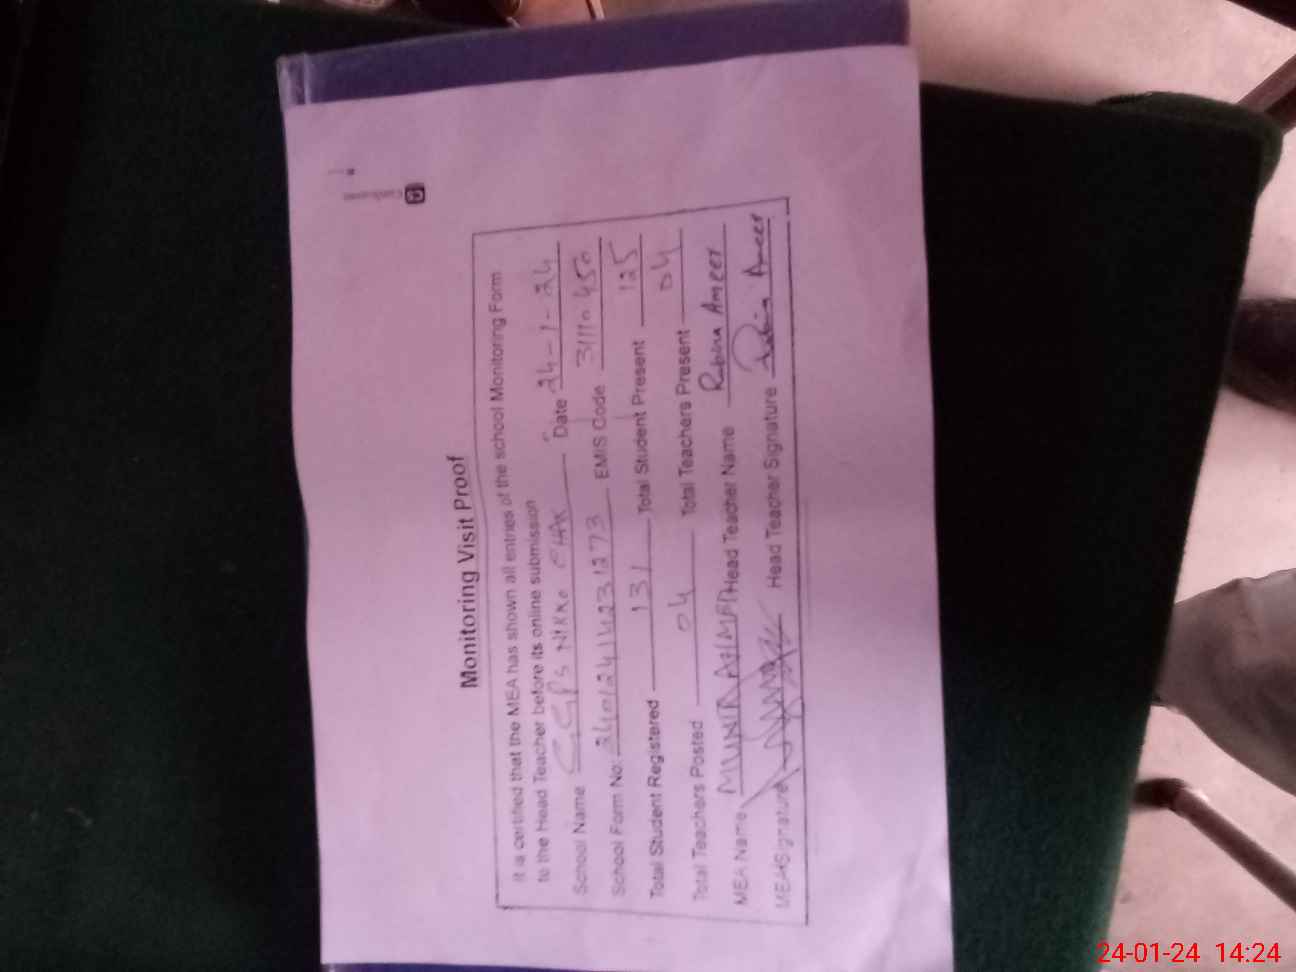 Monitoring Visit Proof
It is certified that the MEA has shown all entries of the school Monitoring Form
to the Head Teacher before its online submission
School Name GGPS Nikko CHAK Date 24-1-24
School Form No: 240124141231273 EMIS Code 31110450
Total Student Registered 131 Total Student Present 125
Total Teachers Posted 04 Total Teachers Present 04
MEA Name MUNIR AHMED Head Teacher Name Rabia Ameer
MEA Signature Head Teacher Signature Rabia Ameer
24-01-24 14:24